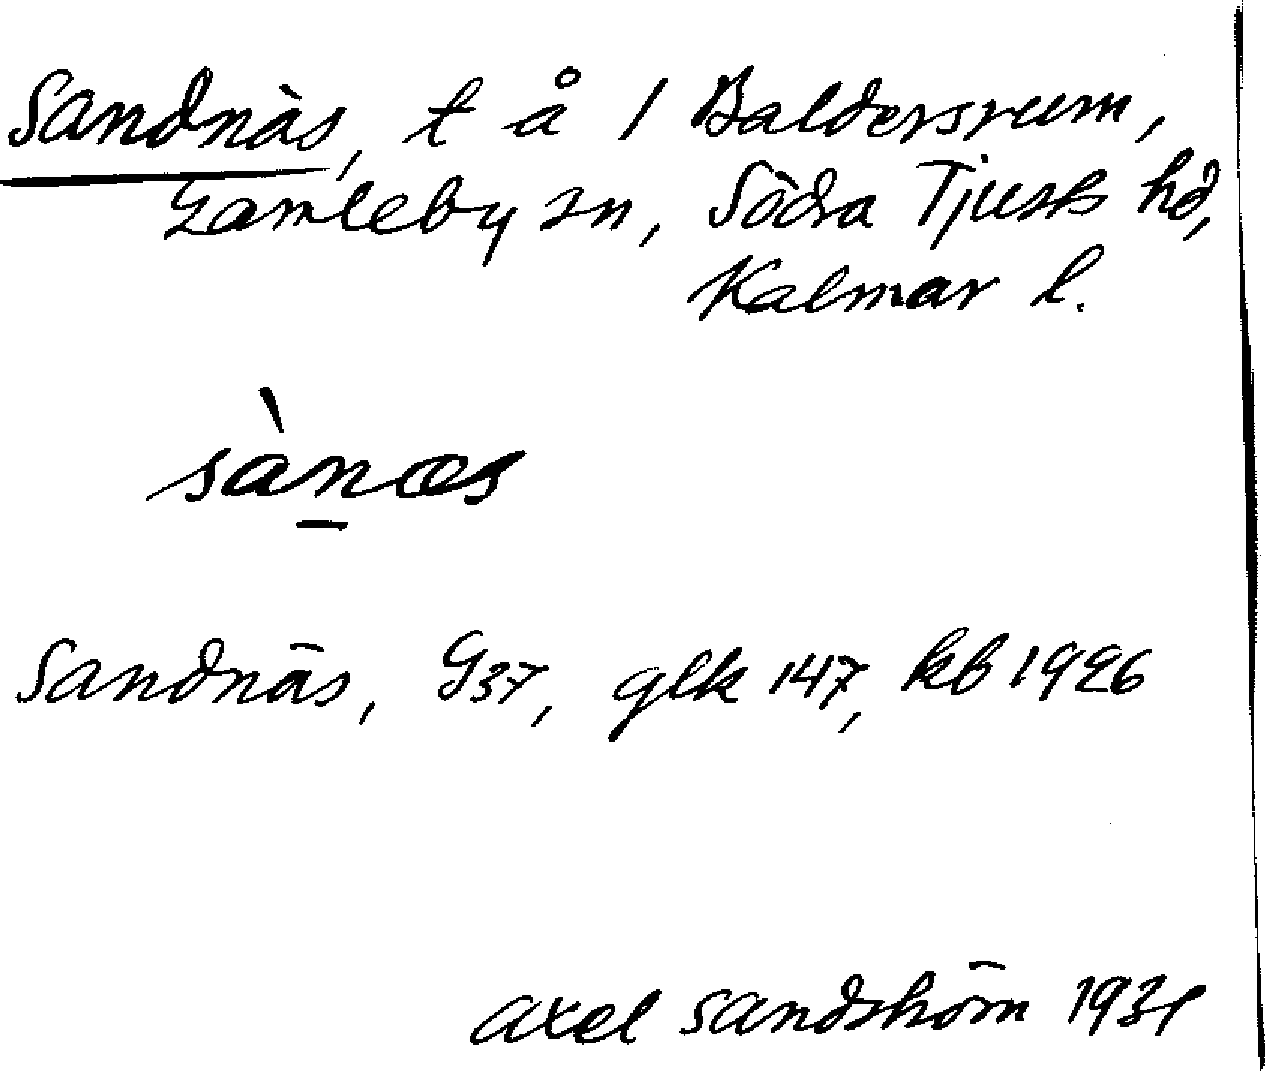 Sandnäs, t å 1 Baldersrum,
Gamleby sn, Södra Tjusts hd,
Kalmar l.
sànæs
Sandnäs, G37, glk 147, kb 1926
Axel Sandström 1931